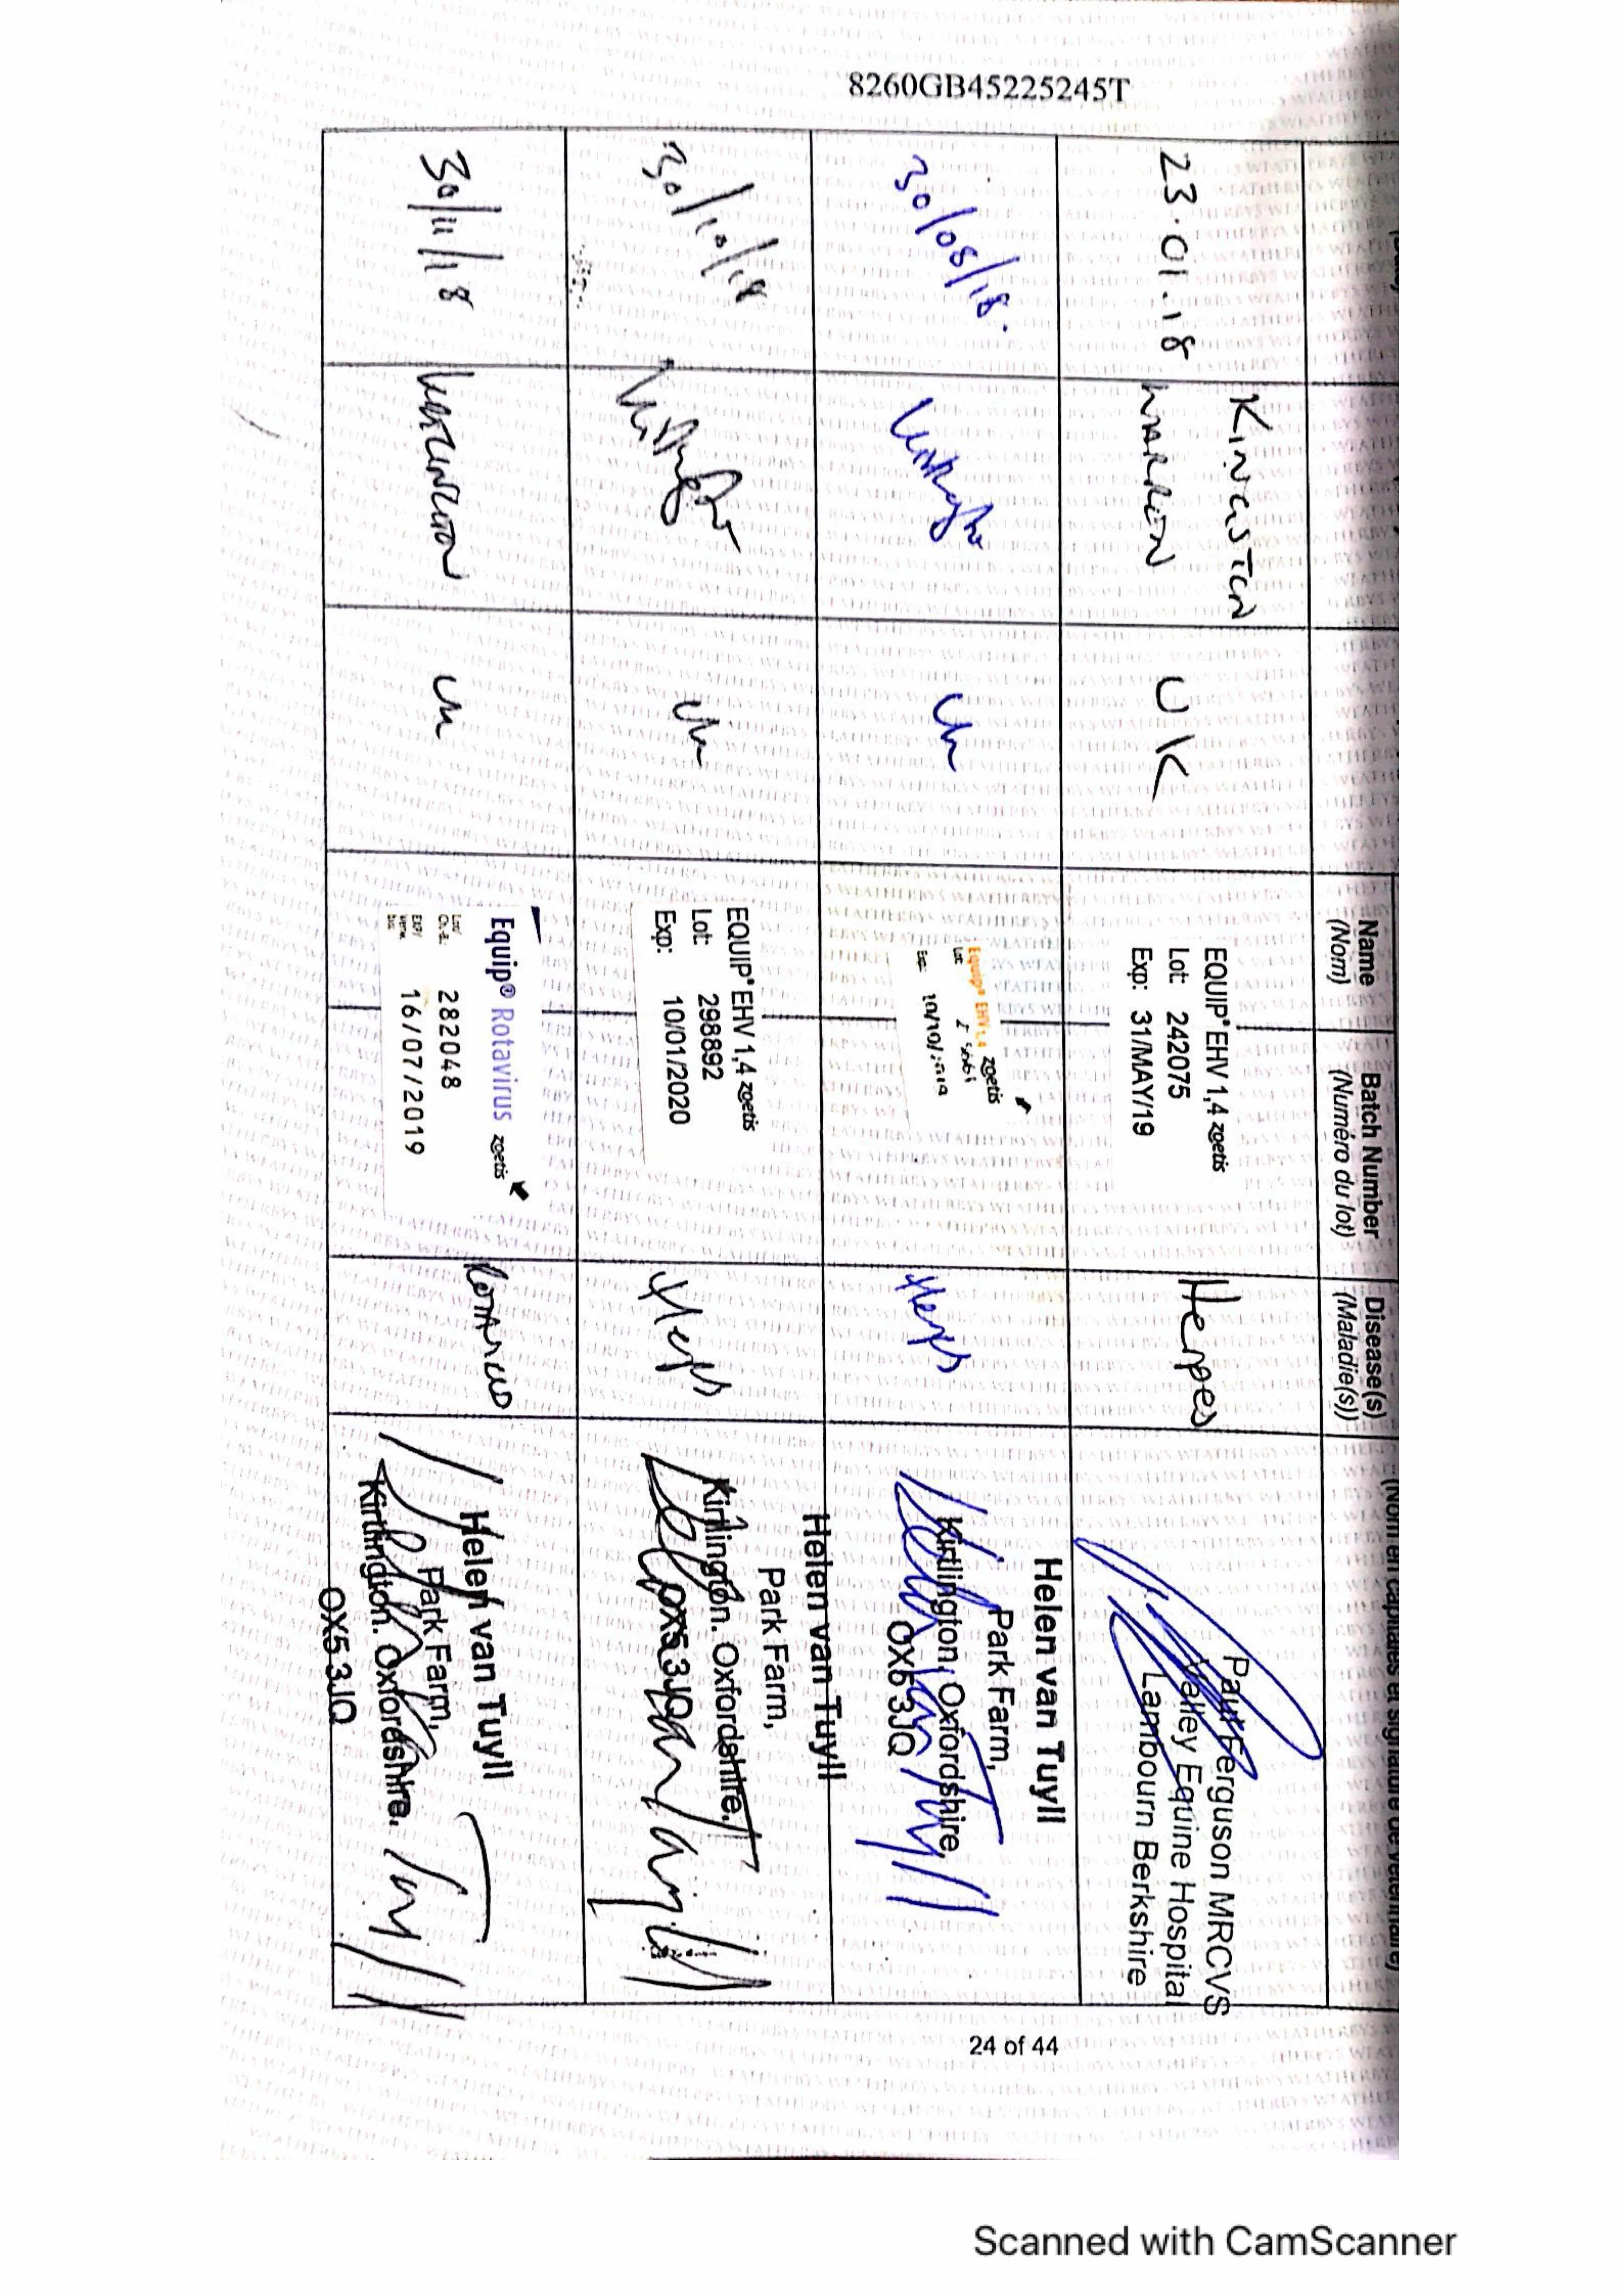 8260GB45225245T
Name
(Nom)
Batch Number
(Numéro du lot)
Disease(s)
(Maladie(s))
(Nom en capitales et signature de vétérinaire)
23.01.18
Kingston
Warren
UK
EQUIP® EHV 1,4 zoetis
Lot: 242075
Exp: 31/MAY/19
Herpes
Paul Ferguson MRCVS
Valley Equine Hospital
Lambourn Berkshire
30/08/18.
UK
Equip® EHV 1,4 zoetis
Lot:
Exp:
Herpes
Helen van Tuyll
Park Farm,
Kirtlington, Oxfordshire,
OX5 3JQ
30/10/18
UK
EQUIP® EHV 1,4 zoetis
Lot: 298892
Exp: 10/01/2020
Herpes
Helen van Tuyll
Park Farm,
Kirtlington. Oxfordshire.
OX5 3JQ
30/11/18
UK
Equip® Rotavirus zoetis
282048
16/07/2019
Helen van Tuyll
Park Farm,
Kirtlington. Oxfordshire.
OX5 3JQ
24 of 44
Scanned with CamScanner